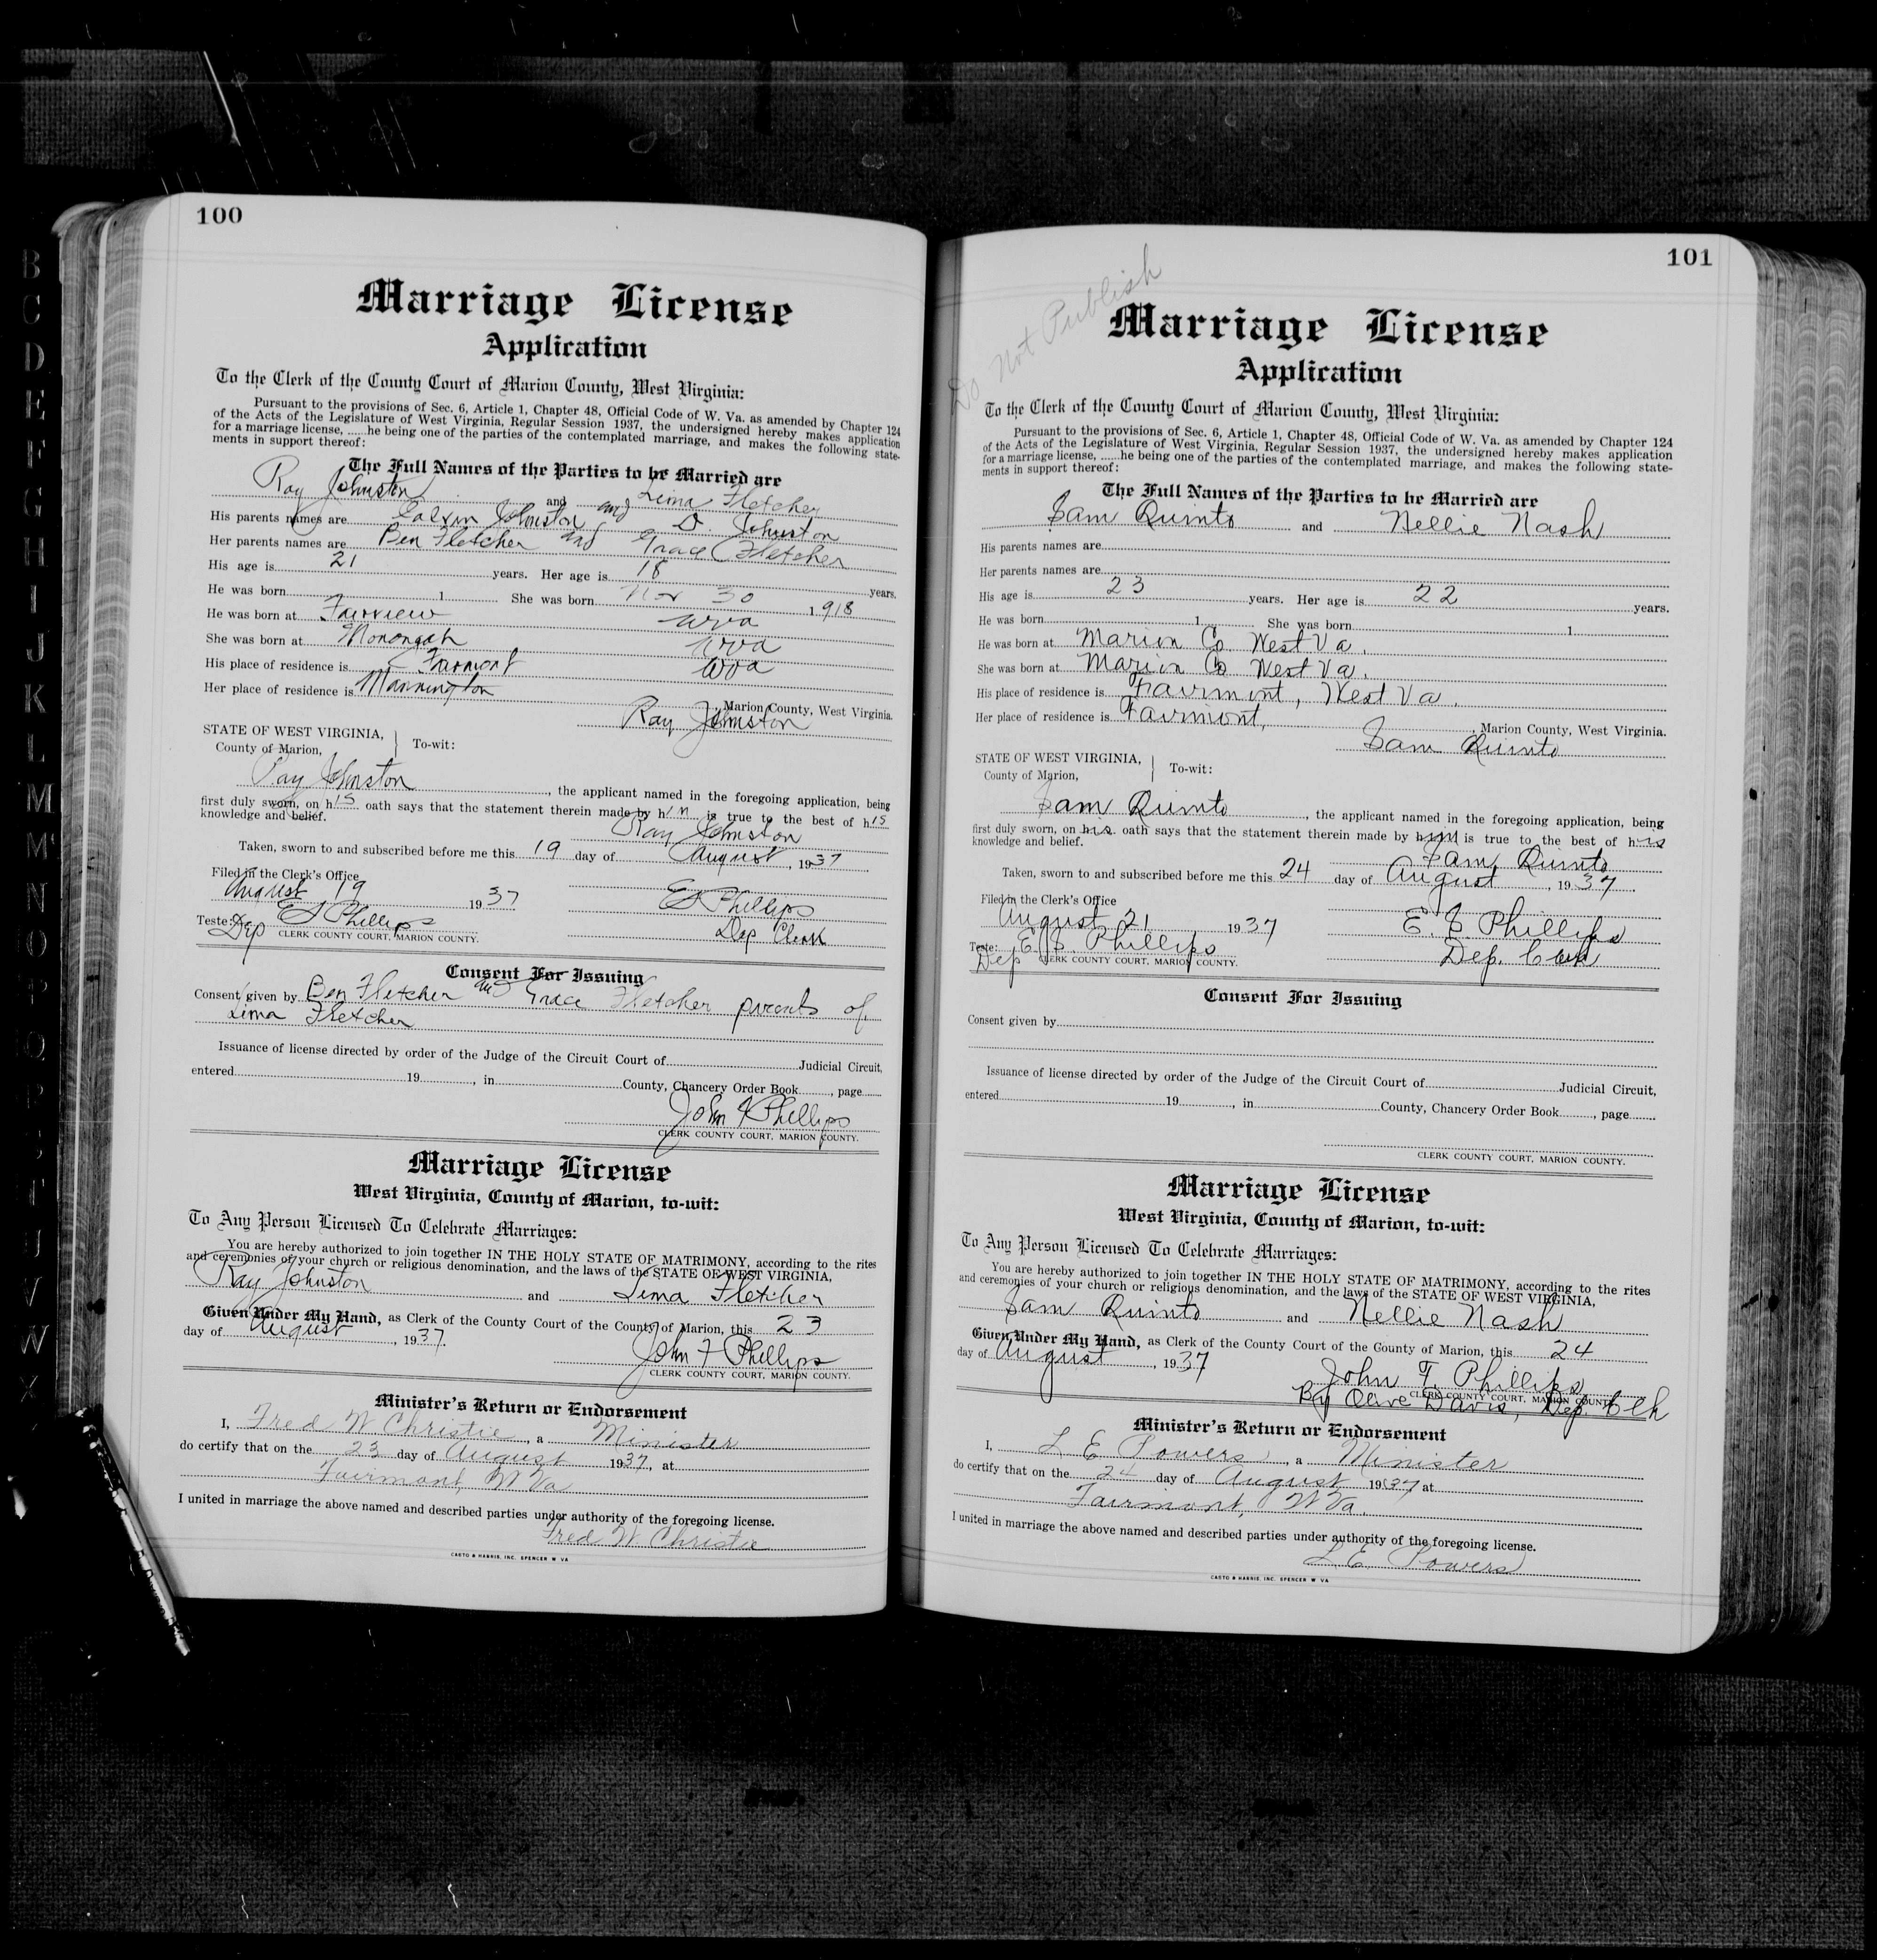 100
Marriage License
Application
To the Clerk of the County Court of Marion County, West Virginia:
Pursuant to the provisions of Sec. 6, Article 1, Chapter 48, Official Code of W. Va. as amended by Chapter 124
of the Acts of the Legislature of West Virginia, Regular Session 1937, the undersigned hereby makes application
for a marriage license, ......he being one of the parties of the contemplated marriage, and makes the following state-
ments in support thereof:
The Full Names of the Parties to be Married are
Ray Johnston and Lima Fletcher
His parents names are Calvin Johnston and D Johnston
Her parents names are Ben Fletcher and Grace Fletcher
His age is 21 years. Her age is 18 years.
He was born 1 She was born Nov 30 1918
He was born at Fairview WVa
She was born at Monongah WVa
His place of residence is Fairmont WVa
Her place of residence is Mannington Marion County, West Virginia.
Ray Johnston
STATE OF WEST VIRGINIA,
County of Marion, To-wit:
Ray Johnston, the applicant named in the foregoing application, being
first duly sworn, on his oath says that the statement therein made by him is true to the best of his
knowledge and belief.
Ray Johnston
Taken, sworn to and subscribed before me this 19 day of August, 1937
Filed in the Clerk's Office
August 19 1937 E S Phillips
Teste: E S Phillips
Dep CLERK COUNTY COURT, MARION COUNTY. Dep Clerk
Consent For Issuing
Consent given by Ben Fletcher and Grace Fletcher parents of
Lima Fletcher
Issuance of license directed by order of the Judge of the Circuit Court of Judicial Circuit,
entered 19, in County, Chancery Order Book, page
John F Phillips
CLERK COUNTY COURT, MARION COUNTY.
Marriage License
West Virginia, County of Marion, to-wit:
To Any Person Licensed To Celebrate Marriages:
You are hereby authorized to join together IN THE HOLY STATE OF MATRIMONY, according to the rites
and ceremonies of your church or religious denomination, and the laws of the STATE OF WEST VIRGINIA,
Ray Johnston and Lima Fletcher
Given Under My Hand, as Clerk of the County Court of the County of Marion, this 23
day of August, 1937.
John F Phillips
CLERK COUNTY COURT, MARION COUNTY.
Minister's Return or Endorsement
I, Fred W Christie, a Minister
do certify that on the 23 day of August 1937, at
Fairmont, W Va
I united in marriage the above named and described parties under authority of the foregoing license.
Fred W Christie
CASTO & HARRIS, INC. SPENCER W VA
101
Do Not Publish
Marriage License
Application
To the Clerk of the County Court of Marion County, West Virginia:
Pursuant to the provisions of Sec. 6, Article 1, Chapter 48, Official Code of W. Va. as amended by Chapter 124
of the Acts of the Legislature of West Virginia, Regular Session 1937, the undersigned hereby makes application
for a marriage license, ......he being one of the parties of the contemplated marriage, and makes the following state-
ments in support thereof:
The Full Names of the Parties to be Married are
Sam Quinto and Nellie Nash
His parents names are
Her parents names are
His age is 23 years. Her age is 22 years.
He was born 1 She was born 1
He was born at Marion Co West Va.
She was born at Marion Co West Va.
His place of residence is Fairmont, West Va.
Her place of residence is Fairmont, Marion County, West Virginia.
Sam Quinto
STATE OF WEST VIRGINIA,
County of Marion, To-wit:
Sam Quinto, the applicant named in the foregoing application, being
first duly sworn, on his oath says that the statement therein made by him is true to the best of his
knowledge and belief.
Sam Quinto
Taken, sworn to and subscribed before me this 24 day of August, 1937
Filed in the Clerk's Office
August 21 1937 E. S. Phillips
Teste: E. S. Phillips
Dep CLERK COUNTY COURT, MARION COUNTY. Dep. Clerk
Consent For Issuing
Consent given by
Issuance of license directed by order of the Judge of the Circuit Court of Judicial Circuit,
entered 19, in County, Chancery Order Book, page
CLERK COUNTY COURT, MARION COUNTY.
Marriage License
West Virginia, County of Marion, to-wit:
To Any Person Licensed To Celebrate Marriages:
You are hereby authorized to join together IN THE HOLY STATE OF MATRIMONY, according to the rites
and ceremonies of your church or religious denomination, and the laws of the STATE OF WEST VIRGINIA,
Sam Quinto and Nellie Nash
Given Under My Hand, as Clerk of the County Court of the County of Marion, this 24
day of August, 1937
John F. Phillips
CLERK COUNTY COURT, MARION COUNTY.
By Olive Davis, Dep. Clk
Minister's Return or Endorsement
I, L E Powers, a Minister
do certify that on the 24 day of August 1937 at
Fairmont, W Va.
I united in marriage the above named and described parties under authority of the foregoing license.
L. E. Powers
CASTO & HARRIS, INC. SPENCER W VA